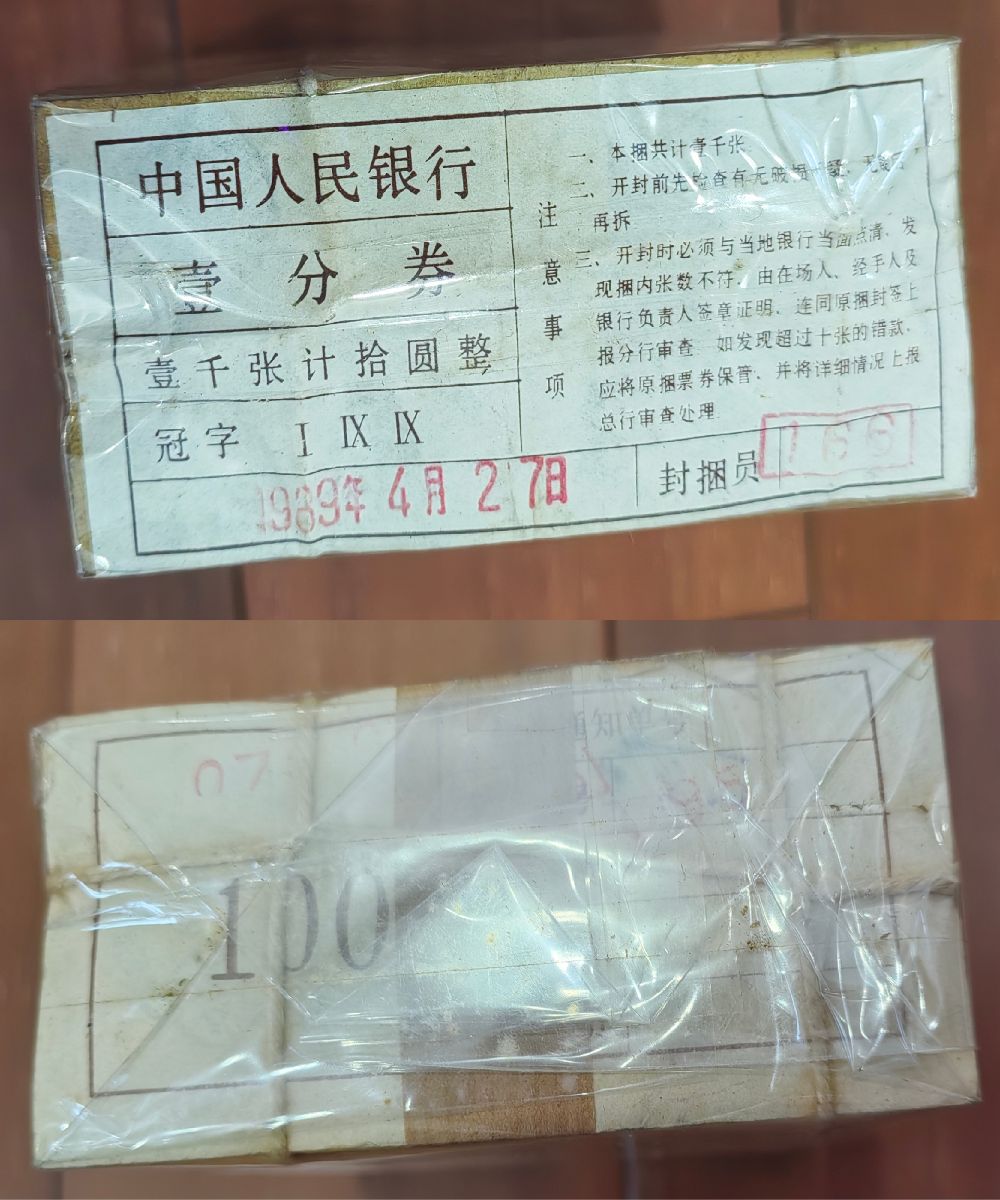 中国人民银行
壹分券
壹千张计拾圆整
冠字 I IX IX
1989年4月27日
注意事项
一、本捆共计壹千张
二、开封前先检查有无破损
再拆
三、开封时必须与当地银行当面点清、发
现捆内张数不符，由在场人、经手人及
银行负责人签章证明、连同原捆封签上
报分行审查 如发现超过十张的错款、
应将原捆票券保管、并将详细情况上报
总行审查处理
封捆员 166
07
通知单
100